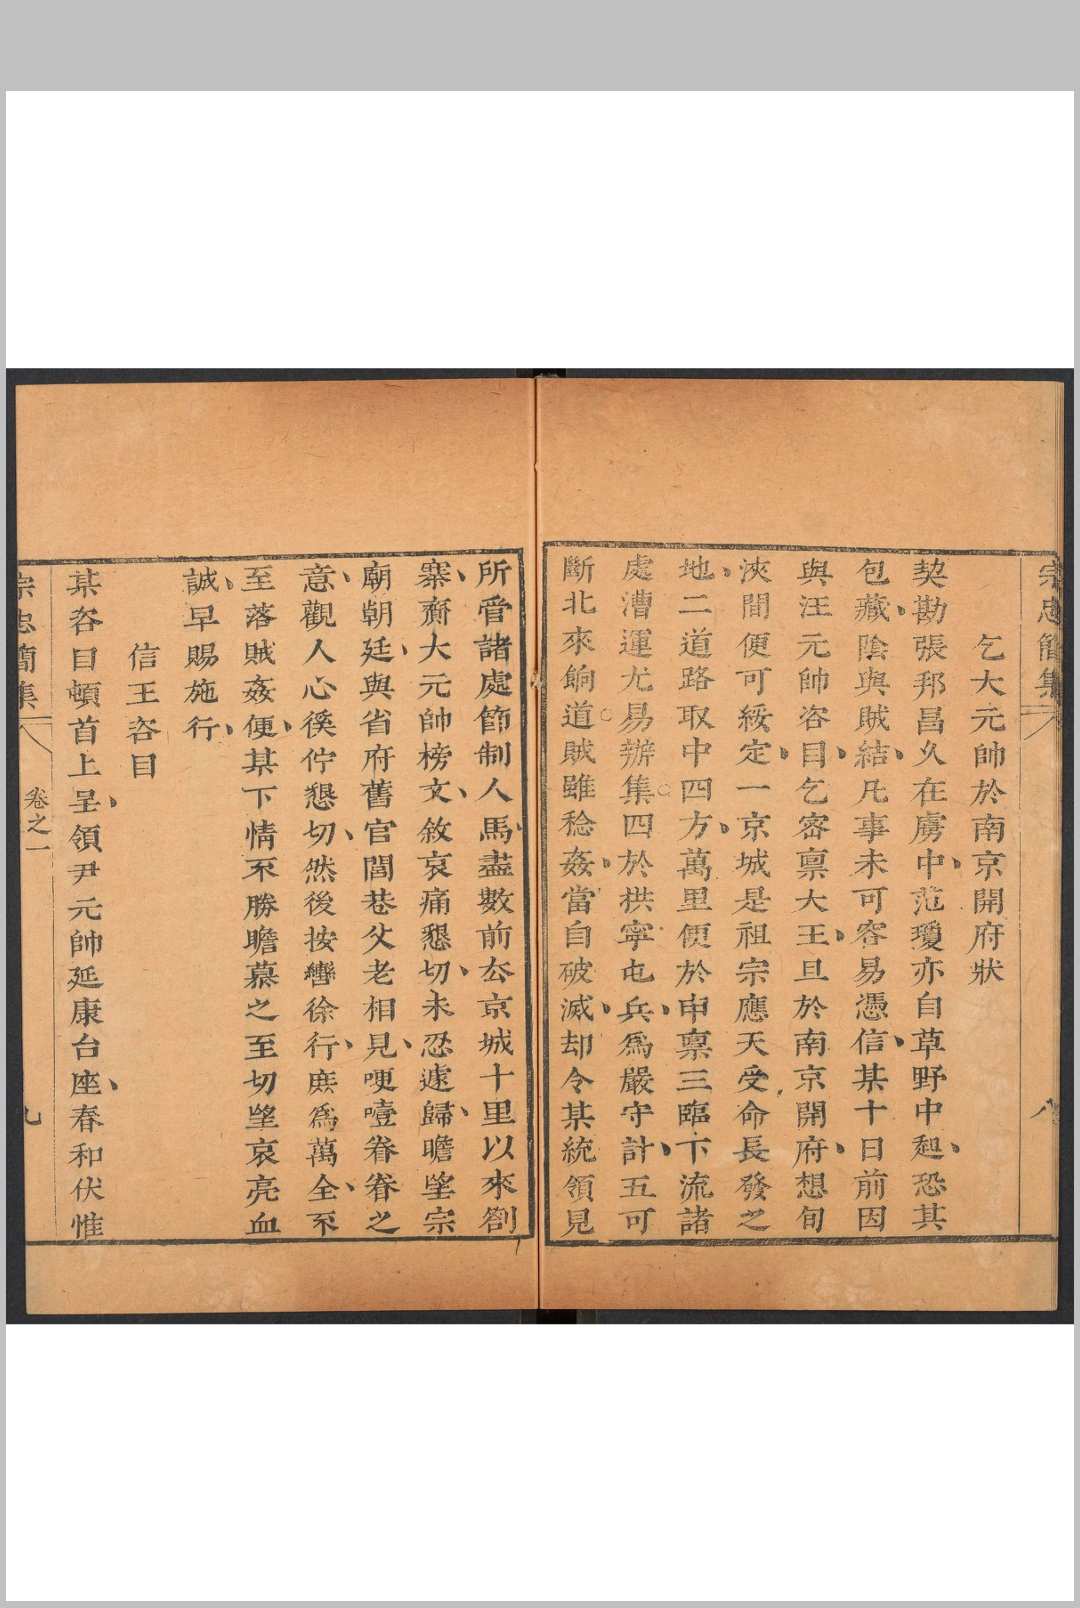 宗忠簡集
八
乞大元帥於南京開府狀
契勘張邦昌久在虜中范瓊亦自草野中起恐其
包藏陰與賊結凡事未可容易憑信某十日前因
與汪元帥咨目乞密禀大王旦於南京開府想旬
浹間便可綏定一京城是祖宗應天受命長發之
地二道路取中四方萬里便於申禀三臨下流諸
處漕運尤易辦集四於拱寧屯兵為嚴守計五可
斷北來餉道賊雖稔姦當自破滅却令某統領見
所管諸處節制人馬盡數前去京城十里以來劄
寨齎大元帥榜文敘哀痛懇切未忍遽歸瞻望宗
廟朝廷與省府舊官閭巷父老相見哽噎眷眷之
意觀人心徯佇懇切然後按轡徐行庶為萬全不
至落賊姦便某下情不勝瞻慕之至切望哀亮血
誠早賜施行
信王咨目
某咨目頓首上呈領尹元帥延康台座春和伏惟
宗忠簡集
卷之一
九